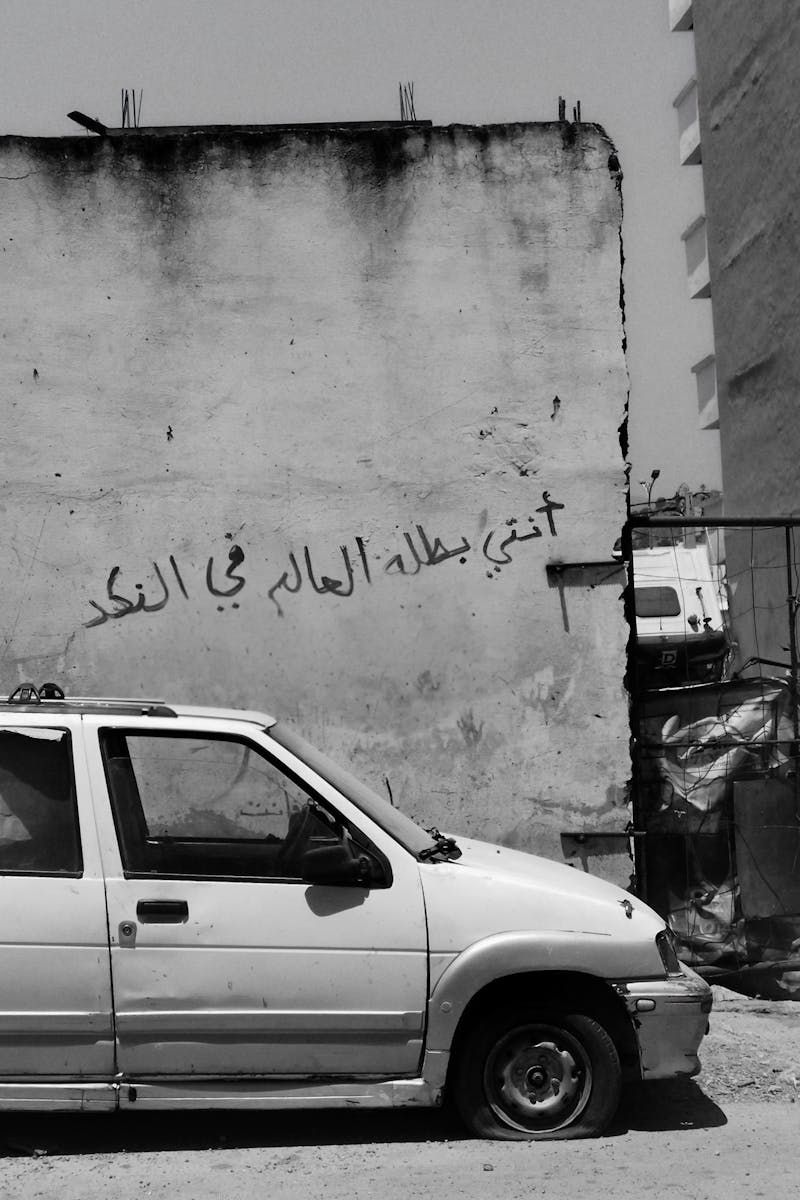 أنتي بطلة العالم في النكد
D